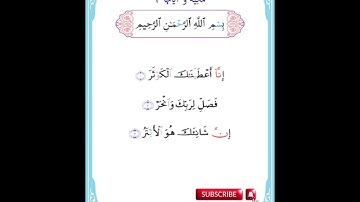 بِسْمِ ٱللَّهِ ٱلرَّحْمَٰنِ ٱلرَّحِيمِ
إِنَّآ أَعْطَيْنَٰكَ ٱلْكَوْثَرَ ١
فَصَلِّ لِرَبِّكَ وَٱنْحَرْ ٢
إِنَّ شَانِئَكَ هُوَ ٱلْأَبْتَرُ ٣
SUBSCRIBE